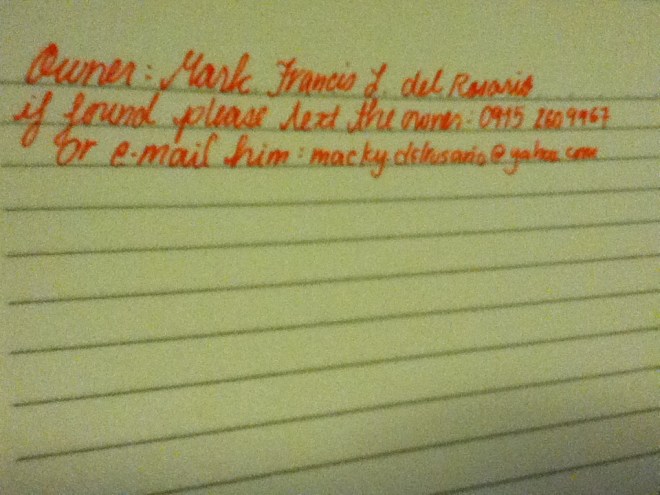 Owner: Mark Francis J. del Rosario
if found please text the owner: 0915 2609967
or e-mail him: macky.delrosario@yahoo.com